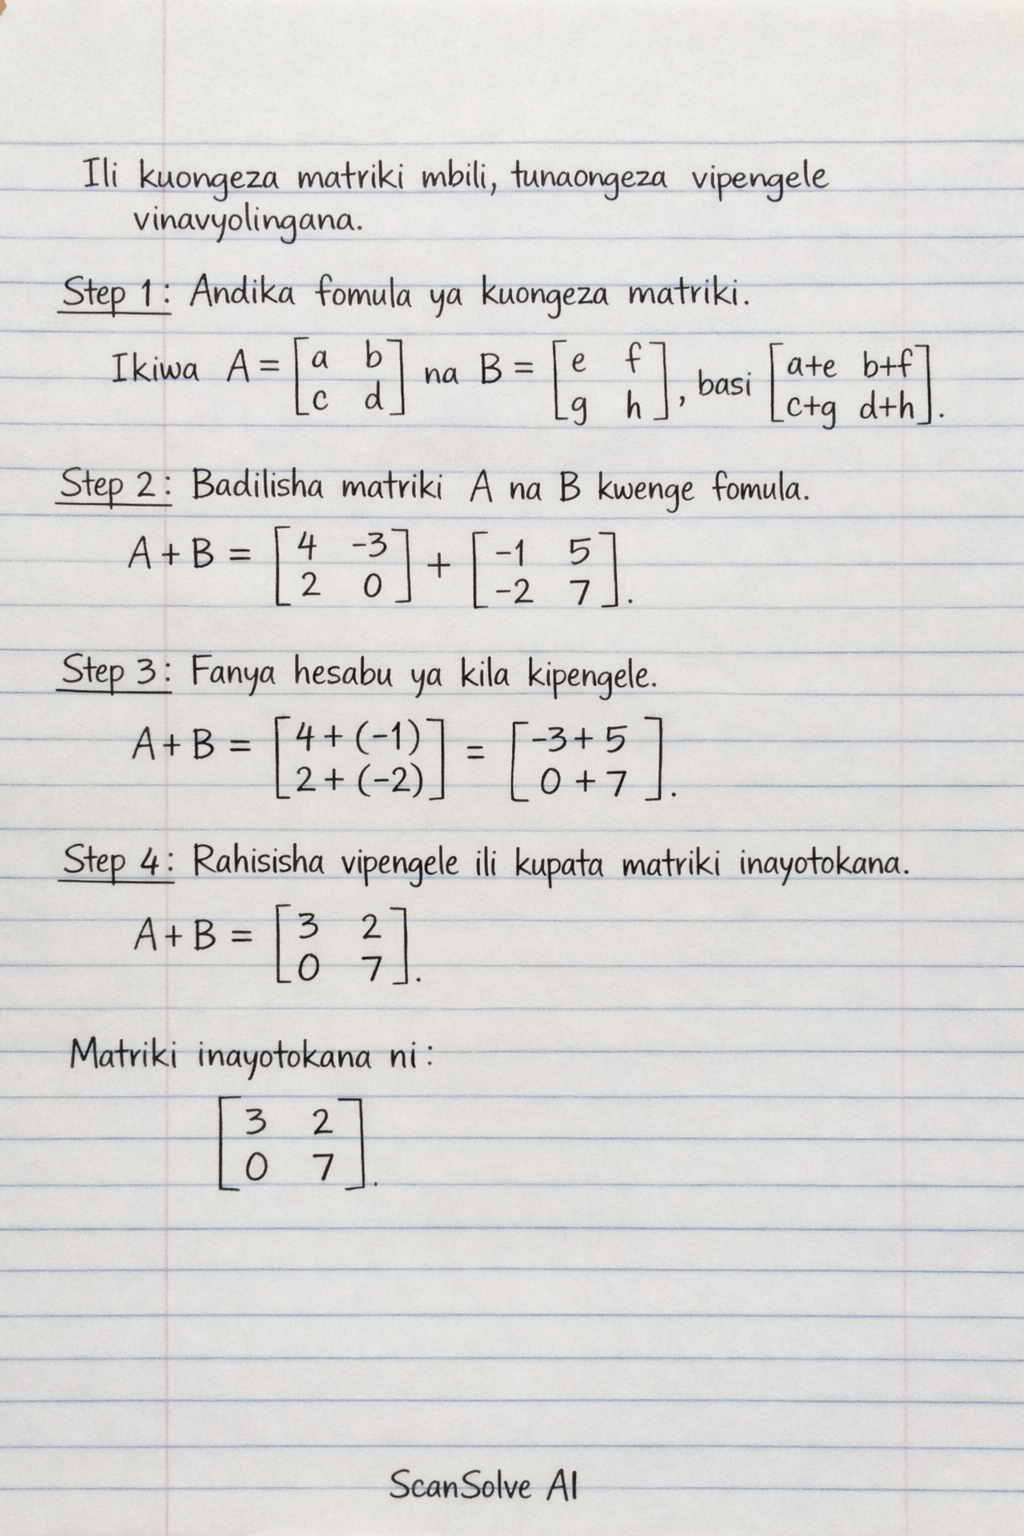 Ili kuongeza matriki mbili, tunaongeza vipengele
vinavyolingana.
Step 1: Andika fomula ya kuongeza matriki.
Ikiwa A = [a b; c d] na B = [e f; g h], basi [a+e b+f; c+g d+h].
Step 2: Badilisha matriki A na B kwenge fomula.
A + B = [4 -3; 2 0] + [-1 5; -2 7].
Step 3: Fanya hesabu ya kila kipengele.
A + B = [4 + (-1); 2 + (-2)] = [-3 + 5; 0 + 7].
Step 4: Rahisisha vipengele ili kupata matriki inayotokana.
A + B = [3 2; 0 7].
Matriki inayotokana ni:
[3 2; 0 7].
ScanSolve AI